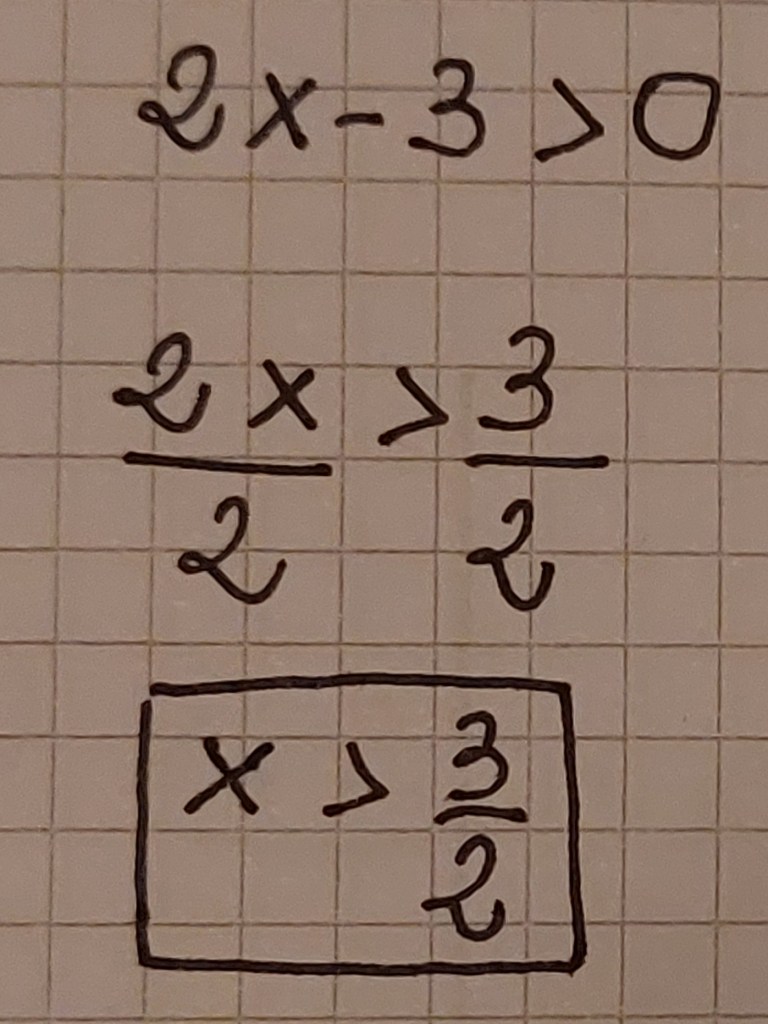 2x - 3 > 0
2x/2 > 3/2
x > 3/2